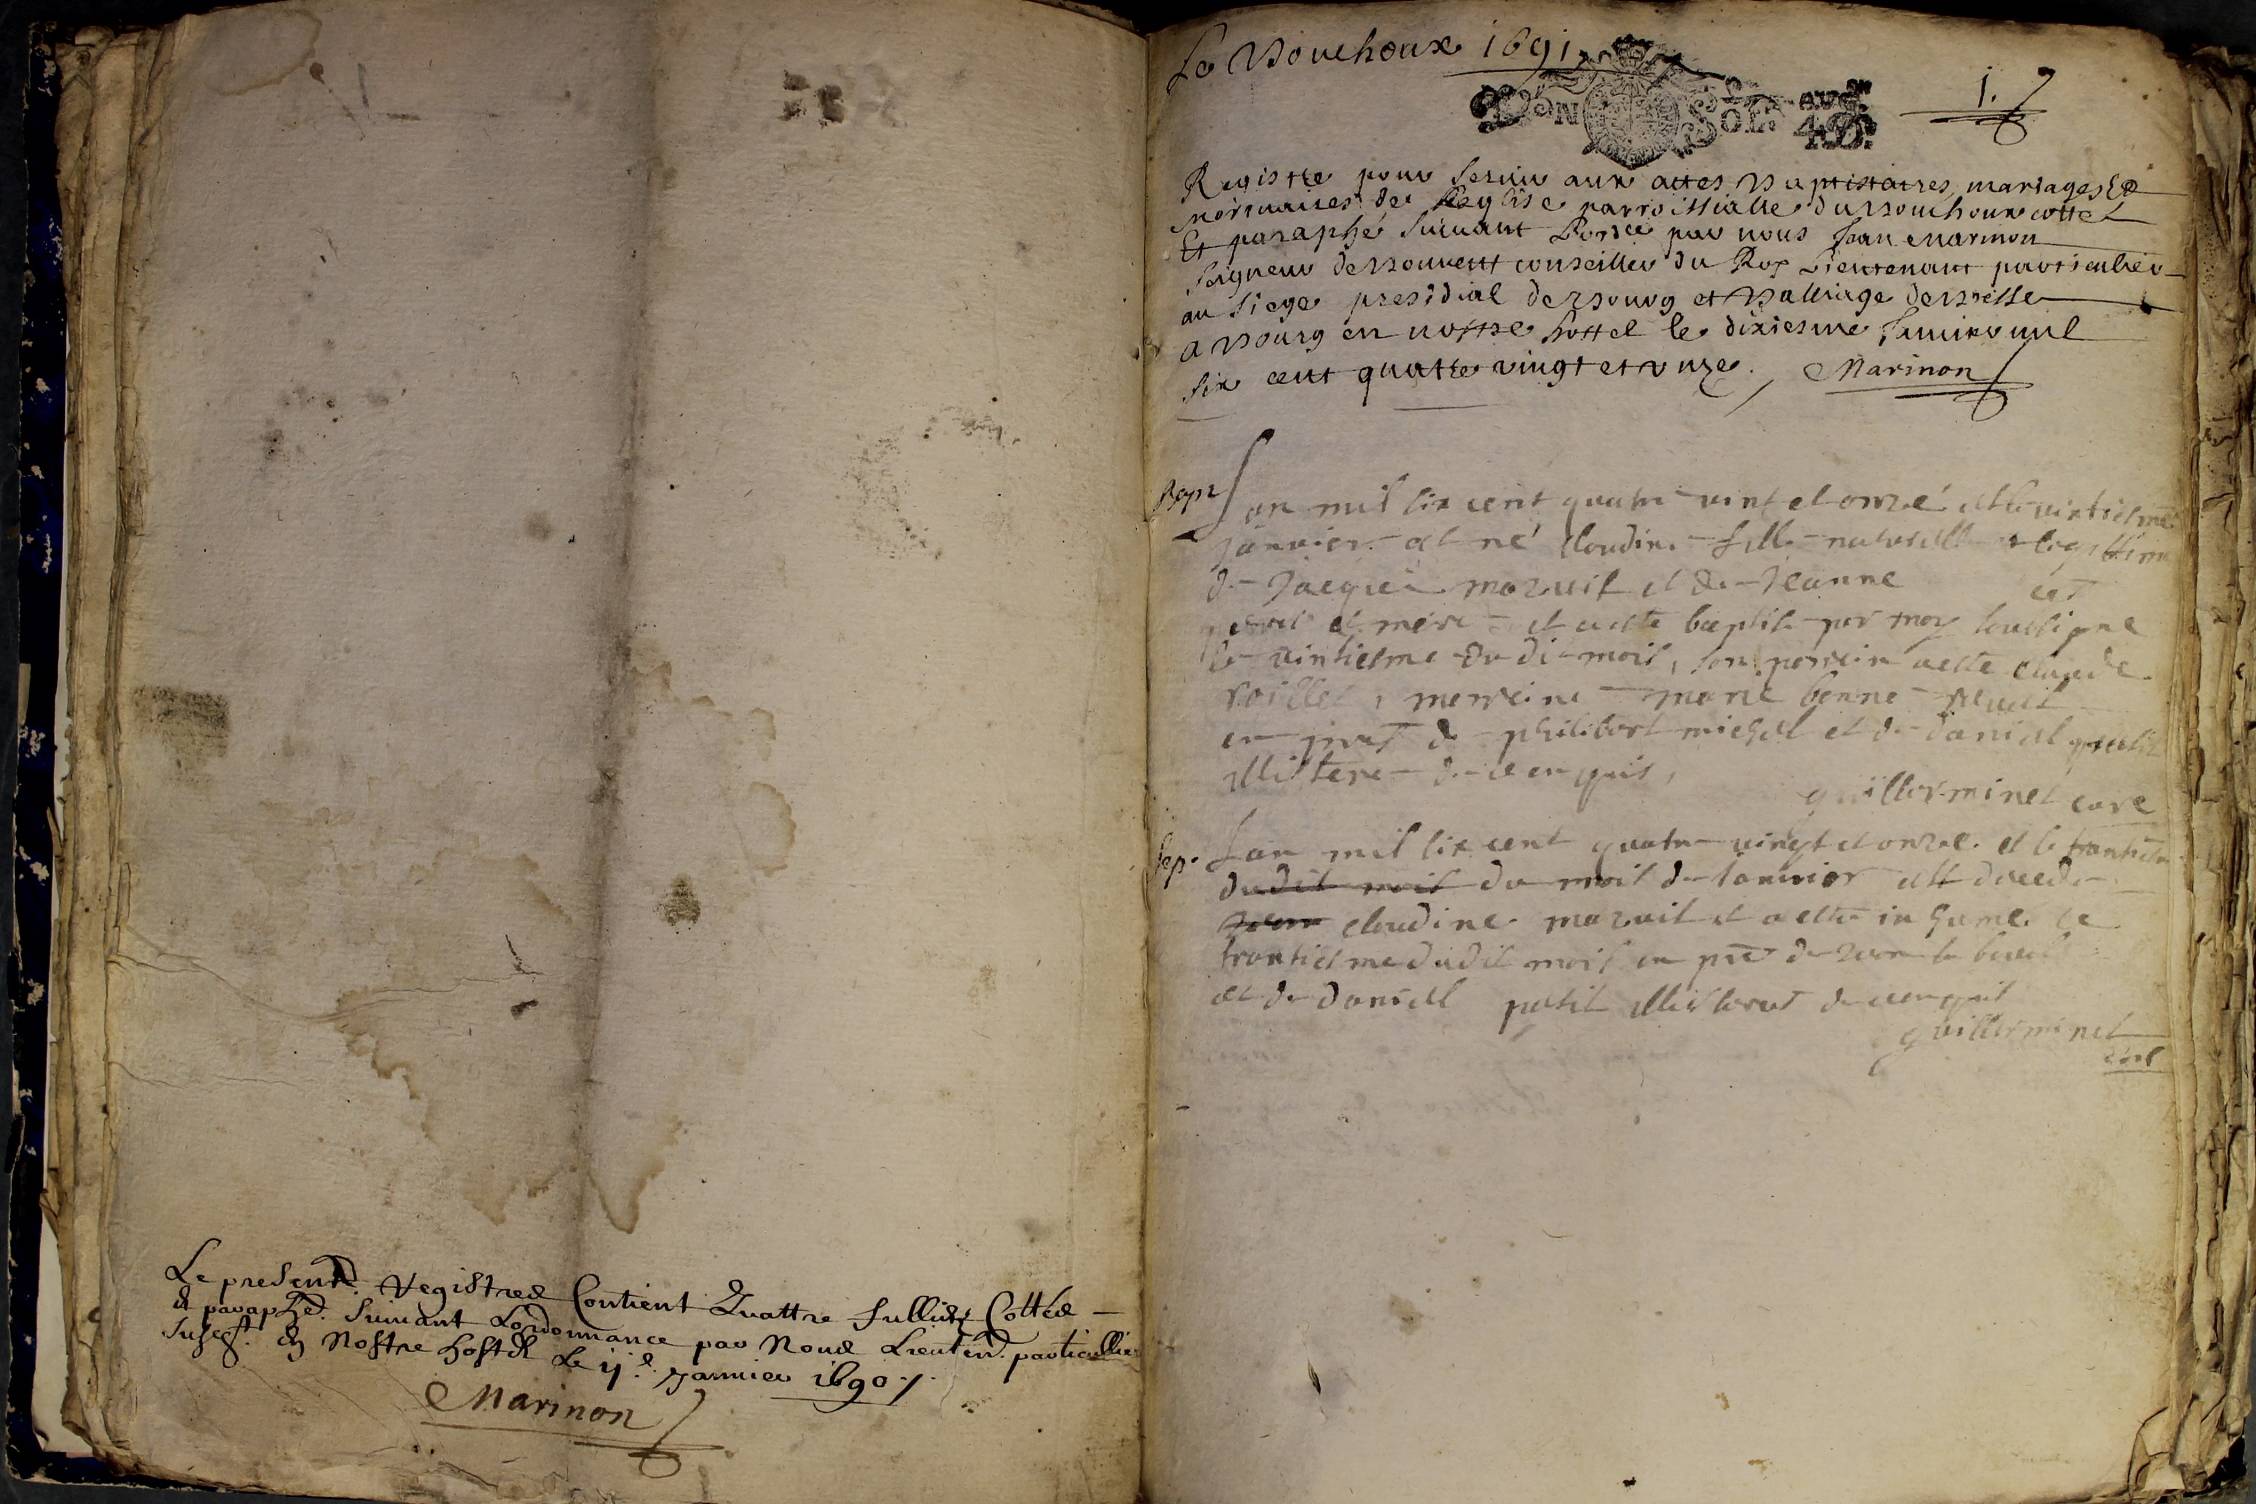 Le present Registre Contient Quattre fullietz Cotted
et paraphed suivant Lordonnance par Nous Lieuten.t particullier
en Nostre hostel Le ij.e Janvier 1690
Marinon
Le Bouchoux 1691
1.
GEN
SOL
4.D.
Registre pour servir aux actes Baptistaires, mariages et
mortuaires de Leglise parroissialle du Bouchoux cotté
Et paraphé suivant Lord.ce par nous Jean Marinon
seigneur de conseiller du Roy Lieutenant particulier
au siege presidial de Bourg et Balliage de Bresse
a Bourg en nostre hottel le dixiesme Janvier mil
six cent quatre vingt et unze. Marinon
Bap.
Lan mil six cent quatre vint et onze et le vintiesme
janvier est né Claudine fille naturelle et legittime
de Jacque mazuit et de Jeanne
pere et mere et a este baptisé par moy soussigne
le vintiesme du dit mois, son parrein a este Claude
, marreine marie bonne
en pnce de philibert michel et de daniel petit
illisteré de ce enquis,
guillerminet cure
Sep.
Lan mil six cent quatre vingt et onze et le trantiesme
dudit mois du mois de Janvier est decedé
claudine mazuit et a esté inhumé le
trantiesme dudit mois en pnce de
et de daniel petit illisteres de ce enquis
guillerminet
curé